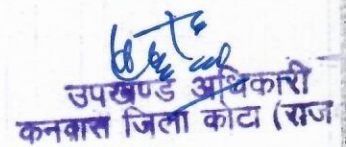 उपखण्ड अधिकारी
कनवास जिला कोटा (राज